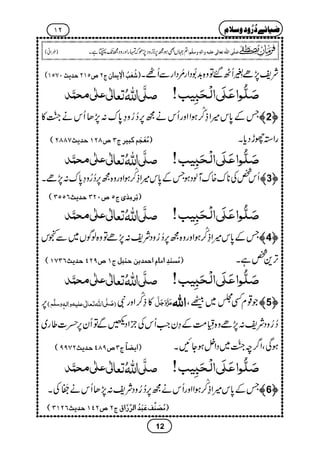 ضیائے دُرُود وسلام ١٢
فرمانِ مصطفٰے صلی اللہ تعالٰی علیہ والہ وسلم
شریف پڑھے بغیر اُٹھ گئے تو وہ بدبودار مُردار سے اُٹھے۔ (شُعَبُ الْاِیمان ج٢ ص٢١٥ حدیث ١٥٧٠)
صَلُّوا عَلَی الْحَبِیب! صلَّی اللہُ تعالٰی علٰی محمَّد
﴿2﴾ جس کے پاس میرا ذِکر ہوا اور اُس نے مجھ پر دُرُودِ پاک نہ پڑھا اُس نے جنّت کا
راستہ چھوڑ دیا۔ (مُعْجَم کبیر ج٣ ص١٢٨ حدیث٢٨٨٧)
صَلُّوا عَلَی الْحَبِیب! صلَّی اللہُ تعالٰی علٰی محمَّد
﴿3﴾ اُس شخص کی ناک خاک آلود ہو جس کے پاس میرا ذِکر ہو اور وہ مجھ پر دُرُودِ پاک نہ پڑھے۔
(تِرمِذی ج٥ ص٣٢٠ حدیث ٣٥٥٦)
صَلُّوا عَلَی الْحَبِیب! صلَّی اللہُ تعالٰی علٰی محمَّد
﴿4﴾ جس کے پاس میرا ذِکر ہو اور وہ مجھ پر دُرُود شریف نہ پڑھے تو وہ لوگوں میں سے کنجوس
ترین شخص ہے۔ (مُسنَدِ امام احمد بن حنبل ج١ ص٤٢٩ حدیث ١٧٣٦)
صَلُّوا عَلَی الْحَبِیب! صلَّی اللہُ تعالٰی علٰی محمَّد
﴿5﴾ جو قوم کسی مجلس میں بیٹھے، اللہ عَزَّوَجَلَّ کا ذِکر اور نبی (صَلَّی اللہُ تعالٰی علیہ والہٖ وسلَّم) پر
دُرُود شریف نہ پڑھے وہ قیامت کے دن جب اُس کی جزا دیکھیں گے تو اُن پر حسرت طاری
ہوگی، اگرچہ جنّت میں داخل ہو جائیں۔ (ایضاً ج٣ ص٤٨٩ حدیث ٩٩٧٢)
صَلُّوا عَلَی الْحَبِیب! صلَّی اللہُ تعالٰی علٰی محمَّد
﴿6﴾ جس کے پاس میرا ذِکر ہوا اور اُس نے مجھ پر دُرُودِ پاک نہ پڑھا اُس نے جفا کی۔
(مُصَنَّف عَبْدُ الرَّزّاق ج٢ ص١٤٢ حدیث ٣١٢٦)
12